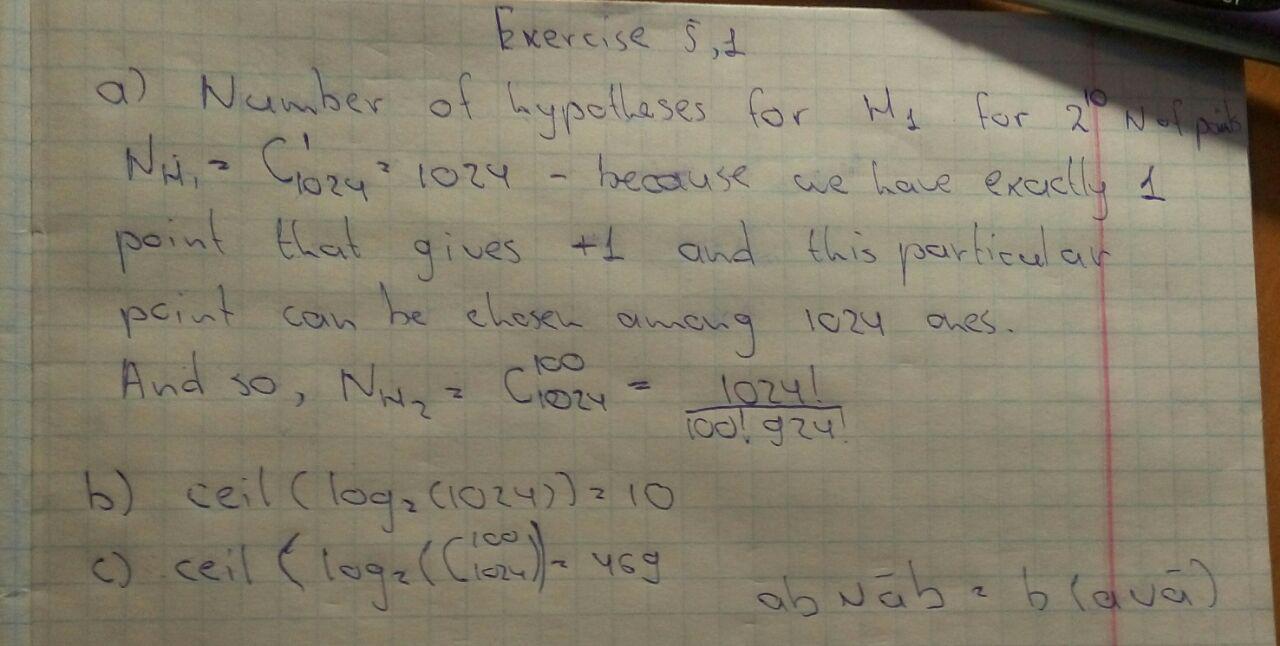 Exercise 5,1
a) Number of hypotheses for H₁ for 2¹⁰ N of points
N_H₁ = C¹₁₀₂₄ = 1024 - because we have exactly 1
point that gives +1 and this particular
point can be chosen among 1024 ones.
And so, N_H₂ = C¹⁰⁰₁₀₂₄ = 1024! / 100! 924!
b) ceil (log₂(1024)) = 10
c) ceil (log₂(C¹⁰⁰₁₀₂₄)) = 469
ab ∨ āb = b (a ∨ ā)